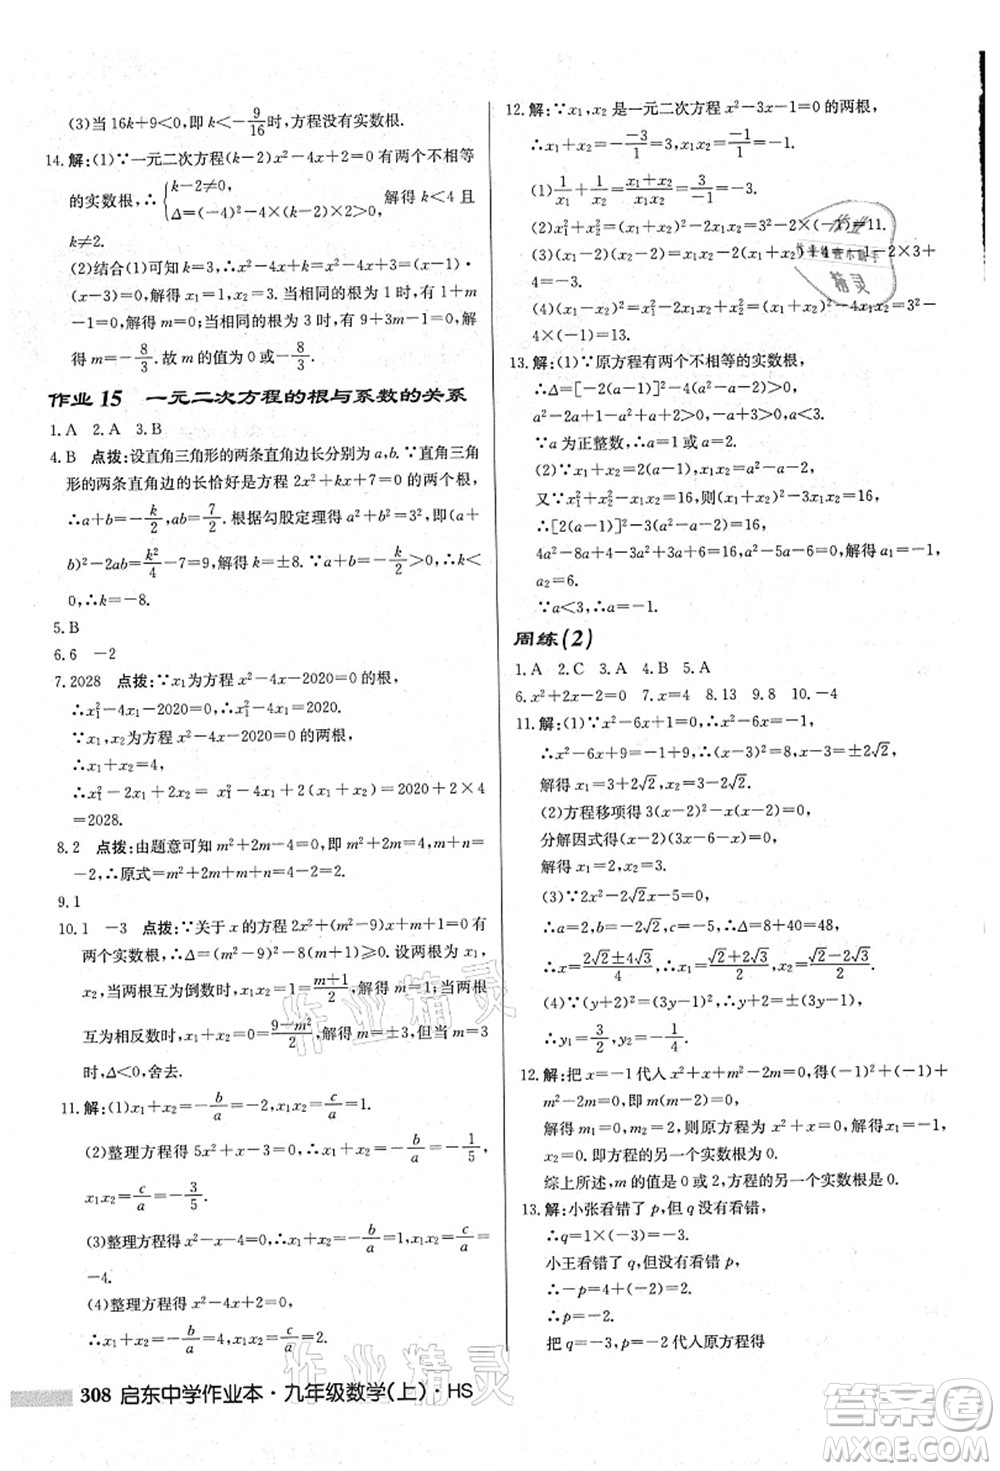 (3)当 16k+9<0,即 k<-9/16时,方程没有实数根.
14.解:(1)∵一元二次方程(k-2)x²-4x+1=0 有两个不相等
的实数根,∴{k-2≠0, Δ=(-4)²-4×(k-2)×1>0, 解得 k<4 且
k≠2.
(2)结合(1)可知 k=3,∴x²-4x+k=x²-4x+3=(x-1)·
(x-3)=0,解得 x₁=1,x₂=3.当相同的根为 1 时,有 1+m
-1=0,解得 m=0;当相同的根为 3 时,有 9+3m-1=0,解
得 m=-8/3.故 m 的值为 0 或-8/3.
作业 15 一元二次方程的根与系数的关系
1.A 2.A 3.B
4.B 点拨:设直角三角形的两条直角边长分别为 a,b.∵直角三角
形的两条直角边的长恰好是方程 2x²+kx+7=0 的两个根,
∴a+b=-k/2,ab=7/2.根据勾股定理得 a²+b²=3²,即(a+
b)²-2ab=k²/4-7=9,解得 k=±8.∵a+b=-k/2>0,∴k<
0,∴k=-8.
5.B
6.6 -2
7.2028 点拨:∵x₁为方程 x²-4x-2020=0 的根,
∴x₁²-4x₁-2020=0,∴x₁²-4x₁=2020.
∵x₁,x₂为方程 x²-4x-2020=0 的两根,
∴x₁+x₂=4,
∴x₁²-2x₁+2x₂=x₁²-4x₁+2(x₁+x₂)=2020+2×4=
2028.
8.2 点拨:由题意可知 m²+2m-4=0,m+n=-2,∴m²+2m=
4,∴原式=m²+2m+m+n=4-2=2.
9.1
10.1 -3 点拨:∵关于 x 的方程 2x²+(m²-9)x+m+1=0 有
两个实数根,∴Δ=(m²-9)²-8(m+1)≥0.设两根为 x₁,
x₂,当两根互为倒数时,x₁x₂=1=(m+1)/2,解得 m=1;当两根
互为相反数时,x₁+x₂=0=(9-m²)/2,解得 m=±3,但当 m=3
时,Δ<0,舍去.
11.解:(1)x₁+x₂=-b/a=2,x₁x₂=c/a=1.
(2)整理方程得 5x²+x-3=0,∴x₁+x₂=-b/a=-1/5,
x₁x₂=c/a=-3/5.
(3)整理方程得 x²-4=0,∴x₁+x₂=-b/a=0,x₁x₂=c/a=
-4.
(4)整理方程得 x²-4x+2=0,
∴x₁+x₂=-b/a=4,x₁x₂=c/a=2.
308 启东中学作业本·九年级数学(上)·HS
12.解:∵x₁,x₂ 是一元二次方程 x²-3x-1=0 的两根,
∴x₁+x₂=-(-3)/1=3,x₁x₂=-1/1=-1.
(1)1/x₁+1/x₂=(x₁+x₂)/(x₁x₂)=3/(-1)=-3.
(2)x₁²+x₂²=(x₁+x₂)²-2x₁x₂=3²-2×(-1)=11.
4=-3.
(4)(x₁-x₂)²=x₁²-2x₁x₂+x₂²=(x₁+x₂)²-4x₁x₂=3²-
4×(-1)=13.
13.解:(1)∵原方程有两个不相等的实数根,
∴Δ=[-2(a-1)]²-4(a²-a-2)>0,
a²-2a+1-a²+a+2>0,-a+3>0,a<3.
∵a 为正整数,∴a=1,2.
(2)∵x₁+x₂=2(a-1),x₁x₂=a²-a-2,
又∵x₁²+x₂²-x₁x₂=16,则(x₁+x₂)²-3x₁x₂=16,
∴[2(a-1)]²-3(a²-a-2)=16,
4a²-8a+4-3a²+3a+6=16,a²-5a-6=0,解得 a₁=-1,
a₂=6.
∵a<3,∴a=-1.
周练(2)
1.A 2.C 3.A 4.B 5.A
6.x²+2x-2=0 7.x=4 8.13 9.8 10.-4
11.解:(1)∵x²-6x+1=0,∴x²-6x=-1,
∴x²-6x+9=-1+9,∴(x-3)²=8,∴x-3=±2√2,
解得 x₁=3+2√2,x₂=3-2√2.
(2)方程移项得 3(x-2)²-x(x-2)=0,
分解因式得(x-2)(3x-6-x)=0,
解得 x₁=2,x₂=3.
(3)∵x²-2√2x-5=0,
∴a=1,b=-2√2,c=-5,∴Δ=8+40=48,
∴x=(2√2±4√3)/2,∴x₁=√2+2√3,x₂=√2-2√3.
(4)∵(y+2)²=(3y-1)²,∴y+2=±(3y-1),
∴y₁=3/2,y₂=-1/4.
12.解:把 x=-1 代入 x²+x+m²-2m=0,得(-1)²+(-1)+
m²-2m=0,
解得 m₁=0,m₂=2,则原方程为 x²+x=0,解得x₁=-1,
x₂=0.即方程的另一个实数根为 0.
综上所述,m 的值是 0 或 2,方程的另一个实数根是 0.
13.解:小张看错了 p,但 q 没有看错,
∴q=1×(-3)=-3.
小王看错了 q,但 p 没有看错,
∴-p=-2+4=2,
∴p=-2.
把 q=-3,p=-2 代入原方程得
作业精灵
作业精灵
精灵
答案圈
MXQE.COM